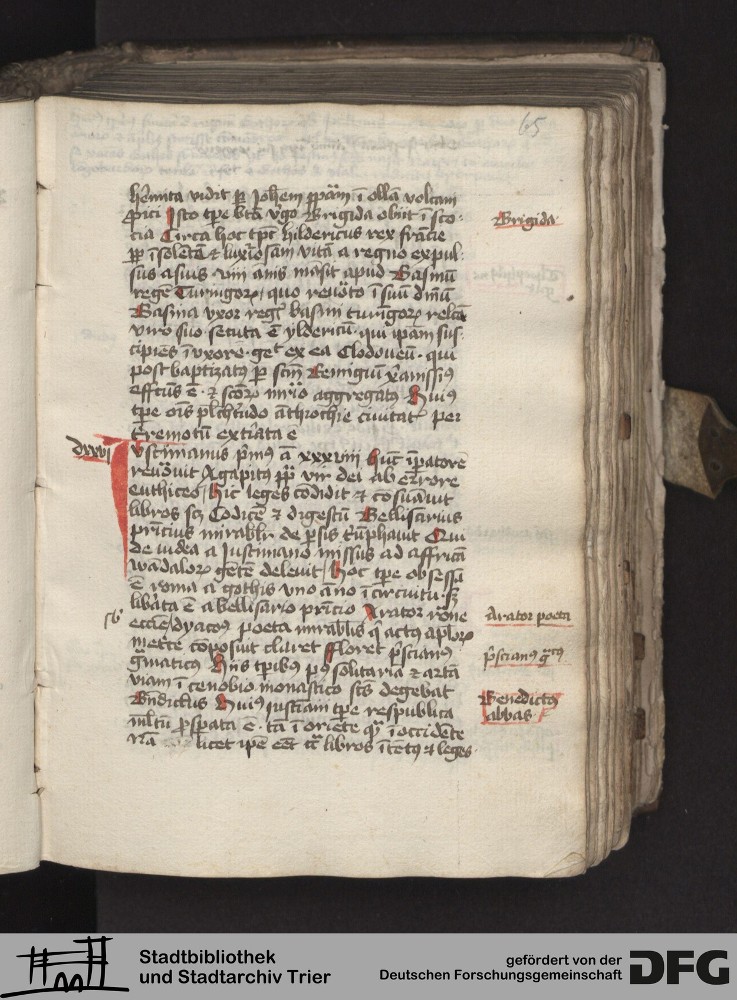 65
hermita vidit per Johem papam i olla volcani
proici Isto tpe bta virgo Brigida obiit i sco
cia Circa hoc tpe hildericus rex francie
pp isolecia et luxuriosam vita a regno expul
sus a suis viii anis masit apud Basinu
rege Turingor quo reuerso i suu dniu
Basina vxor reg basini turigor relcto
viro suo secuta e yldericu qui ipam sus
cipies i vxore get ex ea Clodoueu qui
post baptizatus p scm Remigiu
effcus e et scor aggregatus Huius
tpe ois plchtudo athiochie ciuitat per
terremotu extiata e
Justinianus primus a xxxviii hunc ipatore
reuocauit Agapitus pp vir dei ab errore
euthices Hic leges codidit et
libros sc Codice et digestu Bellisarius
pricius mirablr de persis triuphauit Qui
de iudea a Justiniano missus ad affrica
wadalor gete deleuit Hoc tpe obsessa
e roma a gothis vno anno i circuitu s
liberata e a bellisario pricio Arator rone
eccie dyacous poeta mirablis q actus aplor
metrice coposuit claret floret priscianus
gramaticus Hiis tpibus prius solitaria et arta
viam i cenobio monastico scs degebat
Bndictus Huius iustiani tpe respublica
mltu prosperata e ta i oriete qu i occidete
licet ipe eet libros et leges
Brigida
Arator poeta
priscianus gtcus
Benedictus
abbas
Stadtbibliothek
und Stadtarchiv Trier
gefördert von der
Deutschen Forschungsgemeinschaft
DFG